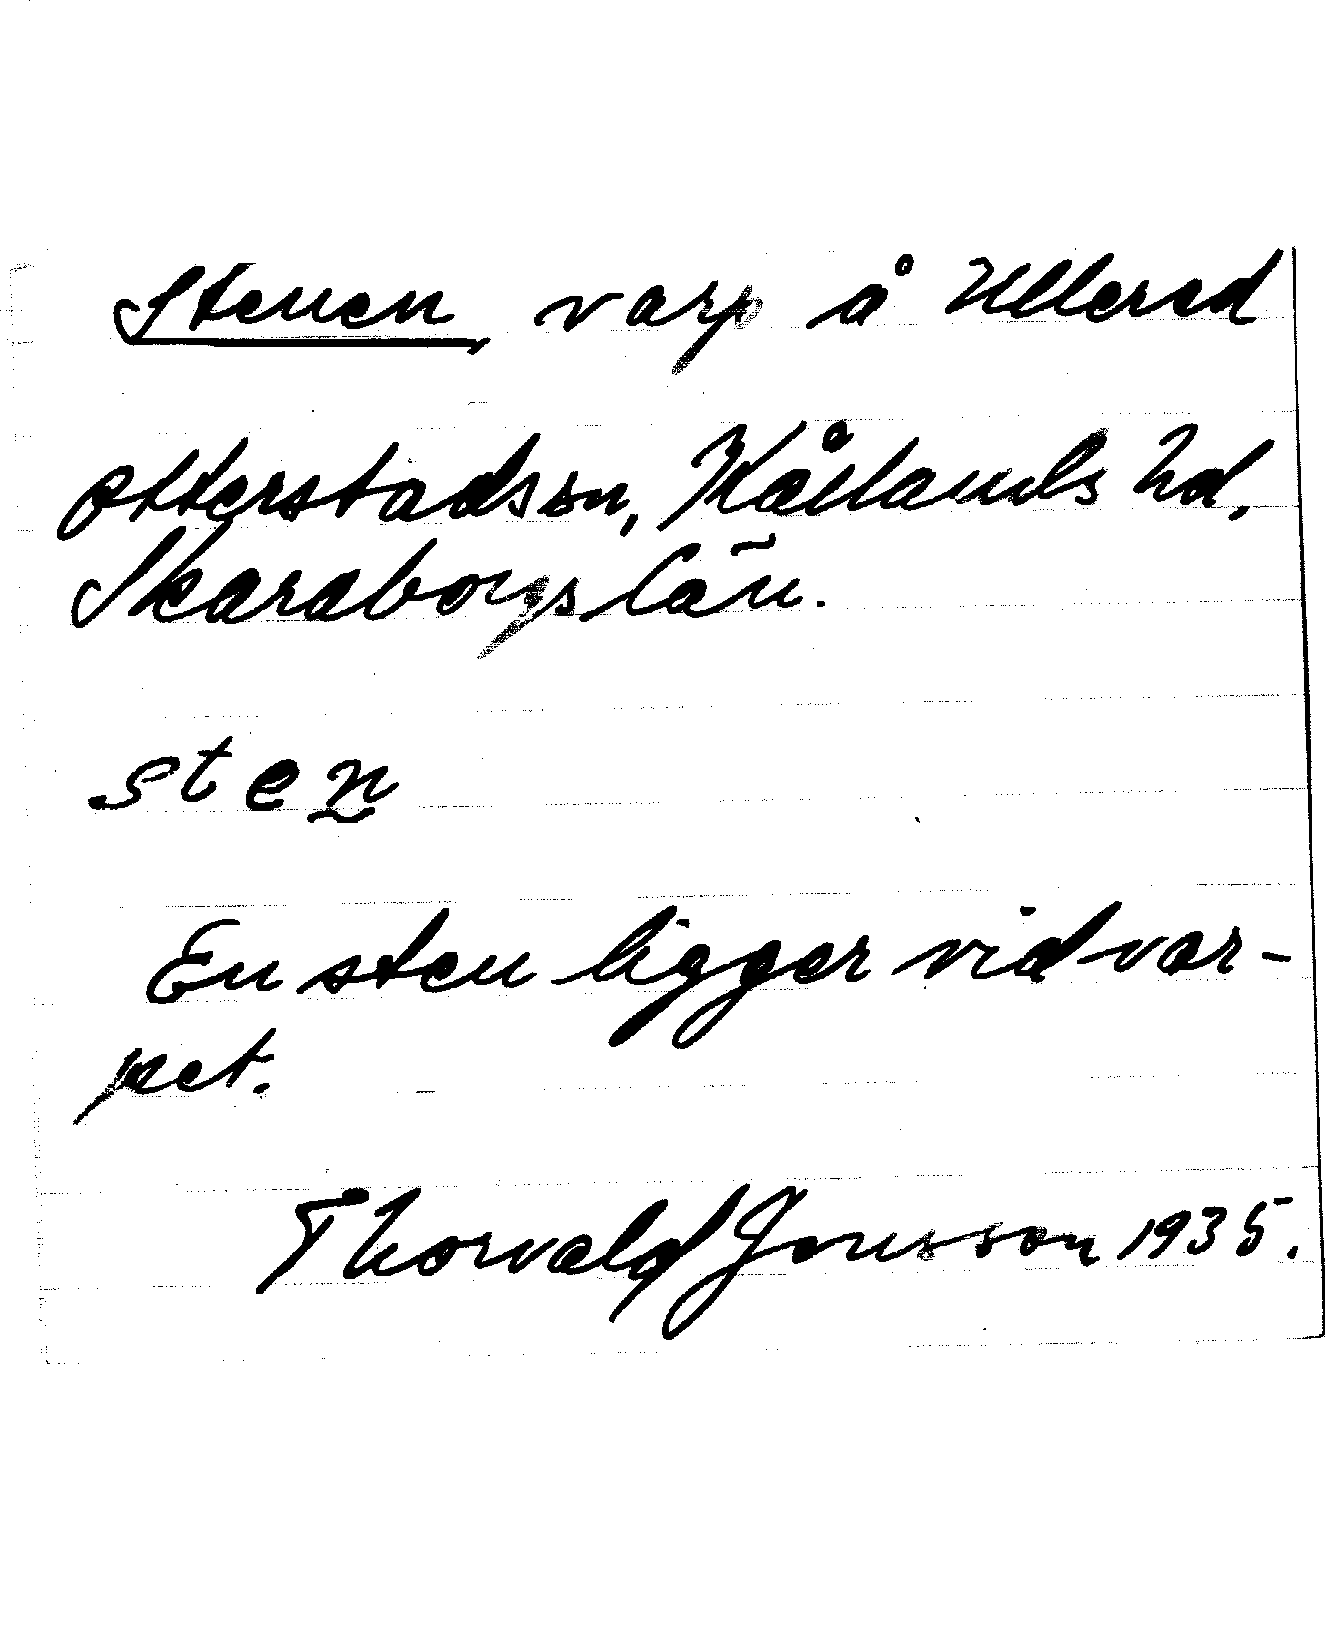 Stenen, varp å Ullersd
Otterstadssn, Kållands hd,
Skaraborgs län.
sten
En sten ligger vid var-
pet.
Thorvald Jonsson 1935.